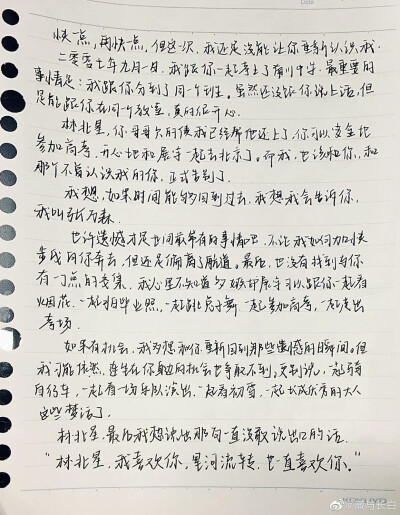 快一点，再快一点，但这一次，我还是没能让你重新认识我。
二零零七年九月一日，我跟你一起考上了南川中学。最重要的
事情是：我跟你分到了同一个班。虽然还没跟你说上话，但
是能跟你在同一个教室，真的很开心。
林北星，你哥哥欠的债我已经帮他还上了，你可以安全地
参加高考，开心地和展宇一起去北京了。而我，也该和你，和
那个不曾认识我的你，正式告别了。
我想，如果时间能够回到过去，我想我会告诉你，
我叫张万森。
也许遗憾才是世间最常有的事情吧，不论我如何加快
步伐向你奔去，但还是偏离了航道。最后，也没有找到与你
有一丁点的交集。我心里不知道多嫉妒展宇可以跟你一起看
烟花，一起拍毕业照，一起跳兔子舞，一起参加高考，一起走出
考场。
如果有机会，我多想和你重新回到那些遗憾的瞬间。但
我可能依然，连坐在你身边的机会也争取不到。更别说，一起骑
自行车，一起看一场乐队演出，一起看初雪，一起长成厉害的大人
这些梦话了。
林北星，最后我想说出那句一直没敢说出口的话
“林北星，我喜欢你，星河流转，也一直喜欢你。”